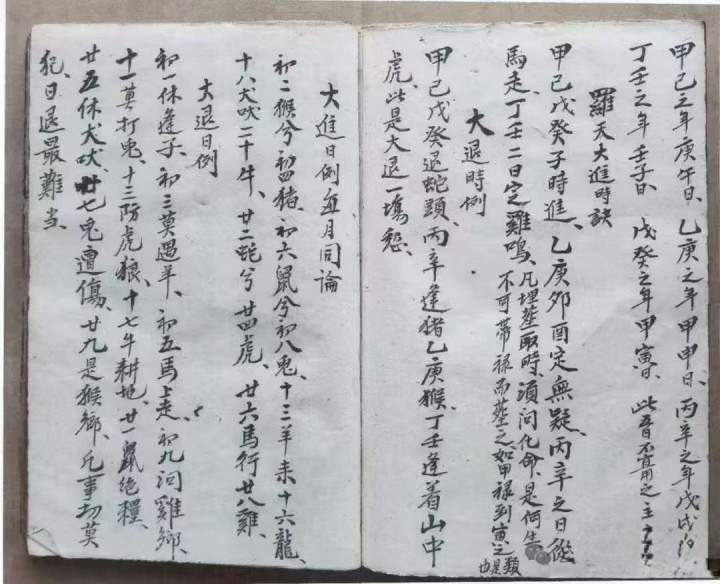 甲己之年庚午日、乙庚之年甲申日、丙辛之年戊戌日、
丁壬之年壬子日、戊癸之年甲寅日、此
羅天大進時訣
甲己戊癸子時進、乙庚卯酉定無疑、丙辛之日從
馬走、丁壬二日定雞鳴、凡埋塟取時、須問化命、是何生
不可帶祿而塟之、如甲祿到寅之類
也是
大退時例
甲己戊癸退蛇頭、丙辛逢猪乙庚猴、丁壬逢着山中
虎、此是大退一塲愁、
大進日例每月同論
初二猴兮初四猪、初六鼠兮初八兎、十三羊来十六龍、
十八犬吠二十牛、廿二蛇兮廿四虎、廿六馬行廿八雞、
大退日例
初一休逢子、初三莫遇羊、初五馬上走、初九问雞鄉、
十一莫打兎、十三防虎狼、十七牛耕地、廿一鼠绝糧、
廿五休犬吠、廿七兎遭傷、廿九是猴鄉、凡事切莫
犯、日退最難当、